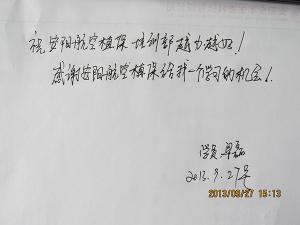 祝安阳航空植保培训部越办越好！
感谢安阳航空植保给我一个学习的机会！
学员：单磊
2013.9.27号
2013/09/27 15:13